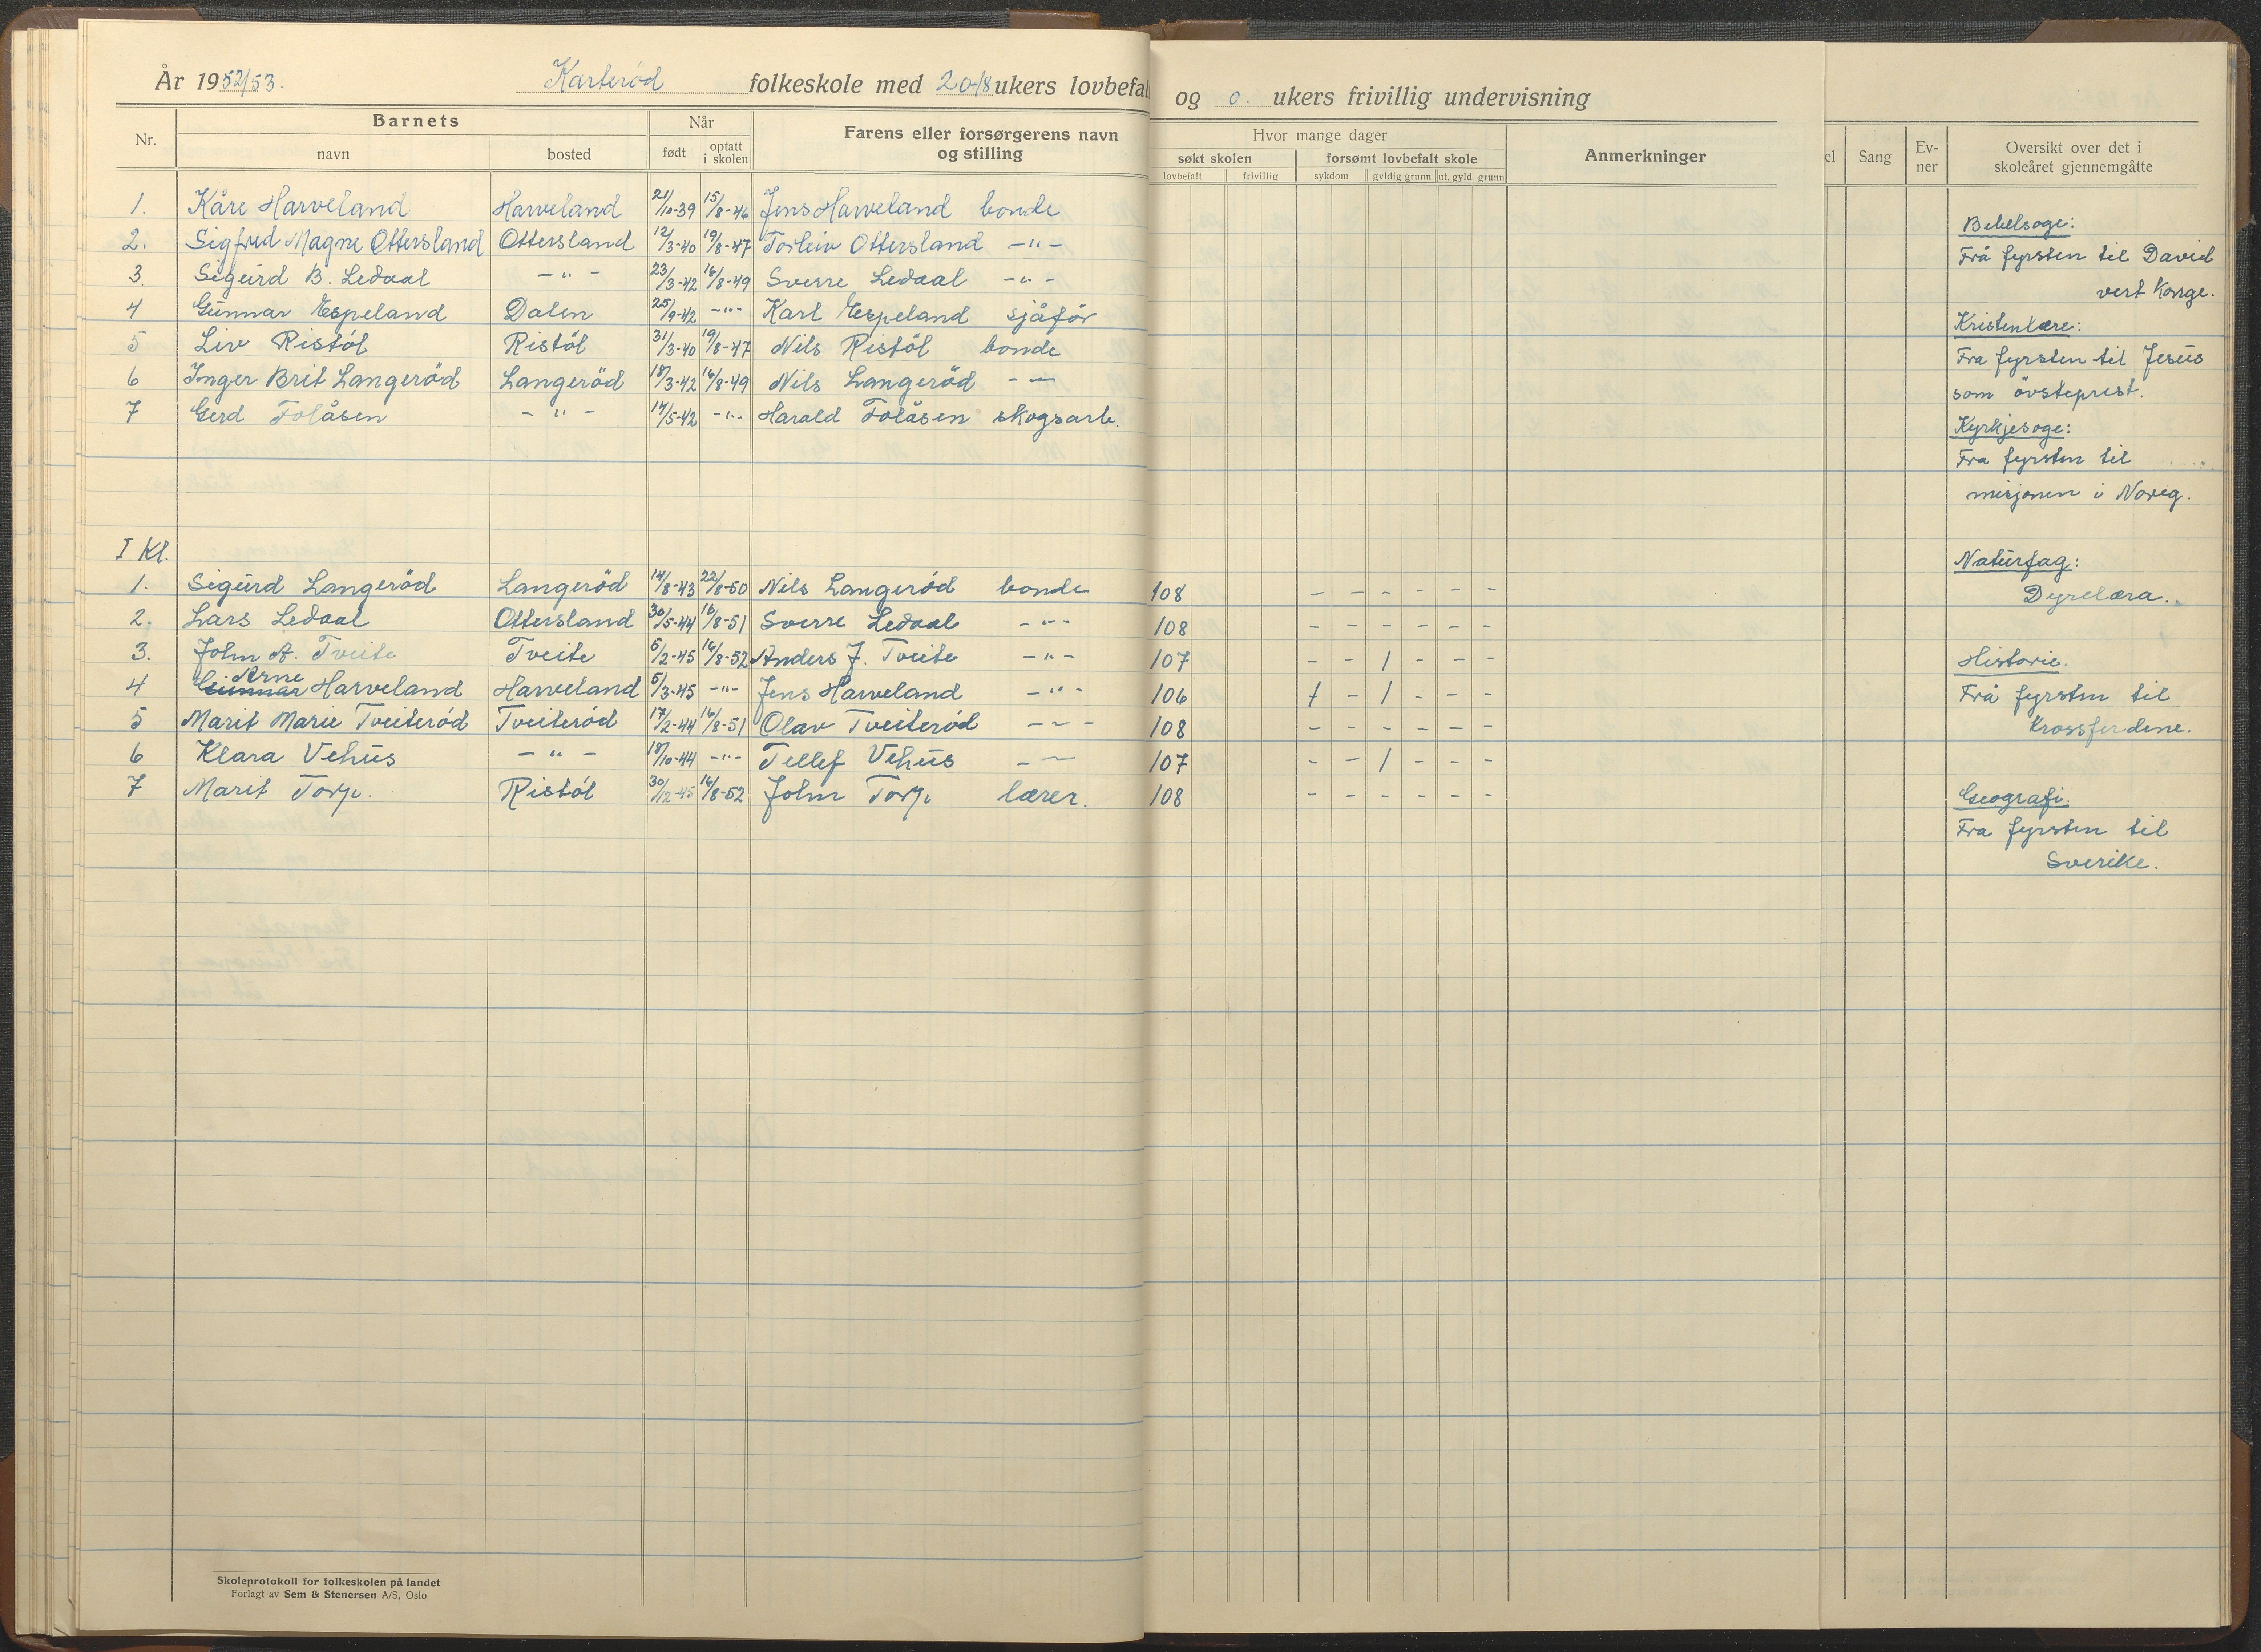 År 1952/53. Karterød folkeskole med 20-18 ukers lovbefal
og 0. ukers frivillig undervisning
Nr. Barnets Når Farens eller forsørgerens navn og stilling
navn bosted født optatt i skolen
Hvor mange dager Anmerkninger
søkt skolen forsømt lovbefalt skole
lovbefalt frivillig sykdom gyldig grunn ut. gyld grunn
el Sang Ev-ner Oversikt over det i skoleåret gjennemgåtte
1. Kåre Harveland Harveland 21/10-39 15/8-46 Jens Harveland bonde
2. Sigfred Magne Ottersland Ottersland 12/3-40 19/8-47 Torleiv Ottersland -"-
3. Sigurd B. Ledaal -"- 23/3-42 16/8-49 Sverre Ledaal -"-
4 Gunnar Espeland Dalen 25/9-42 -"- Karl Espeland sjåför
5 Liv Ristöl Ristöl 31/3-40 19/8-47 Nils Ristöl bonde
6 Inger Brit Langeröd Langeröd 18/3-42 16/8-49 Nils Langeröd -"-
7 Gerd Folåsen -"- 14/5-42 -"- Harald Folåsen skogsarb.
I Kl.
1. Sigurd Langeröd Langeröd 14/8-43 22/8-50 Nils Langeröd bonde 108 - - - - - -
2. Lars Ledaal Ottersland 30/5-44 16/8-51 Sverre Ledaal -"- 108 - - - - - -
3. John A. Tveite Tveite 6/2-45 16/8-52 Anders J. Tveite -"- 107 - - 1 - - -
Arne
4 Gunnar Harveland Harveland 5/3-45 -"- Jens Harveland -"- 106 1 - 1 - - -
5 Marit Marie Tveiteröd Tveiteröd 17/2-44 16/8-51 Olav Tveiteröd -"- 108 - - - - - -
6 Klara Vehus -"- 18/10-44 -"- Tellef Vehus -"- 107 - - 1 - - -
7 Marit Torp. Ristöl 30/12-45 16/8-52 John Torp lærer. 108 - - - - - -
Bibelsoge:
Frå fyrsten til David
vert Konge.
Kristenlære:
Fra fyrsten til Jesus
som övsteprest.
Kyrkjesoge:
Fra fyrsten til
misjonen i Noreg.
Naturfag:
Dyrelæra.
Historie.
Frå fyrsten til
Krossferdene.
Geografi.
Fra fyrsten til
Sverike.
Skoleprotokoll for folkeskolen på landet
Forlagt av Sem & Stenersen A/S, Oslo